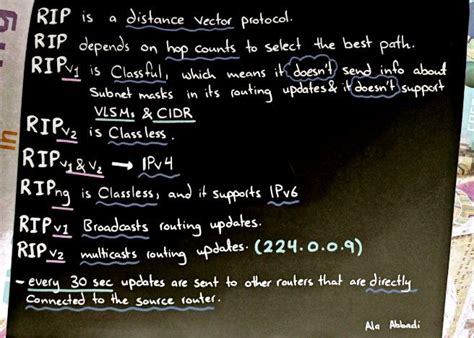 RIP is a distance vector protocol.
RIP depends on hop counts to select the best path.
RIPv1 is Classful, which means it doesn't send info about
Subnet masks in its routing updates & it doesn't support
VLSMs & CIDR
RIPv2 is Classless.
RIPv1 & v2 → IPv4
RIPng is Classless, and it supports IPv6
RIPv1 Broadcasts routing updates.
RIPv2 multicasts routing updates. (224.0.0.9)
- every 30 sec updates are sent to other routers that are directly
connected to the source router.
Ala Abbadi